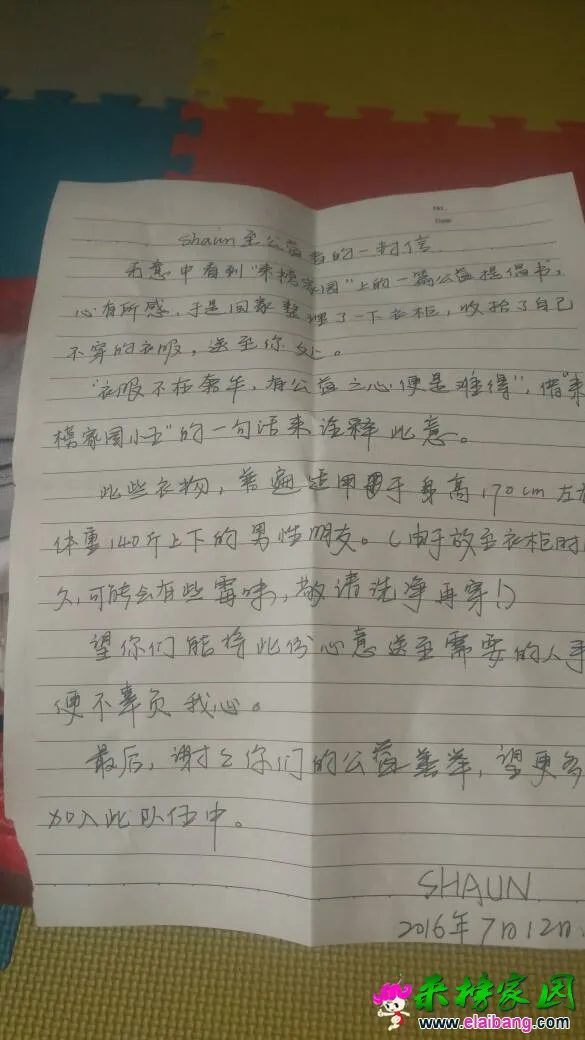 No.
Date
Shaun至公益者的一封信
无意中看到"来榜家园"上的一篇公益提倡书,
心有所感,于是回家整理了一下衣柜,收拾了自己
不穿的衣服,送至你处。
"衣服不在奢华,有公益之心便是难得",借"来
榜家园小玉"的一句话来诠释此意。
此些衣物,普遍适用于身高170cm左右
体重140斤上下的男性朋友。(由于放至衣柜时
久,可能会有些霉味,敬请洗净再穿!)
望你们能将此份心意送至需要的人手
便不辜负我心。
最后,谢谢你们的公益善举,望更多
加入此队伍中。
SHAUN
2016年7月12日.
来榜家园
www.elaibang.com